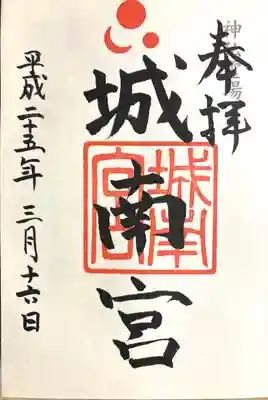 奉拝
城南宮
城南宮
平成二十五年 三月十六日